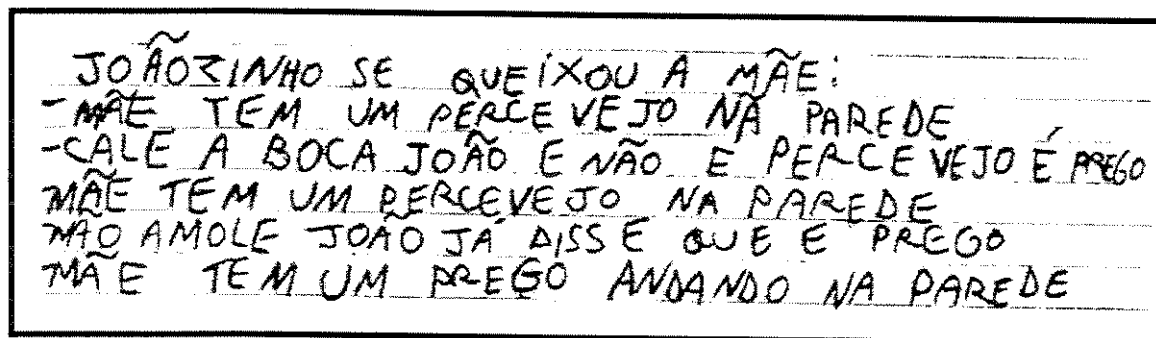 JOÃOZINHO SE QUEIXOU A MÃE:
-MÃE TEM UM PERCEVEJO NÃ PAREDE
-CALE A BOCA JOÃO E NÃO E PERCEVEJO É PREGO
MÃE TEM UM PERCEVEJO NA PAREDE
NÃO AMOLE JOÃO JÁ DISSE QUE E PREGO
MÃE TEM UM PREGO ANDANDO NA PAREDE